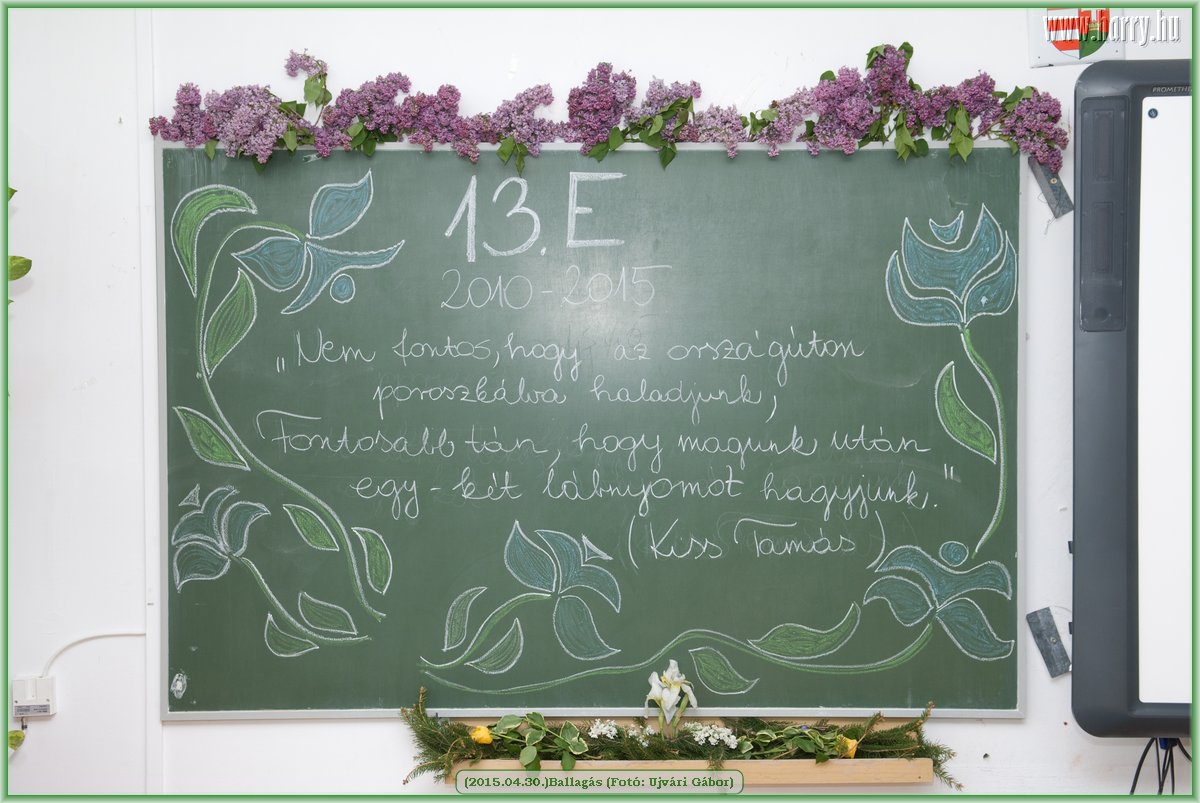 www.harry.hu
PROMETHE
13. E
2010-2015
„Nem fontos, hogy az országúton
poroszkálva haladjunk,
Fontosabb tán, hogy magunk után
egy-két lábnyomot hagyjunk."
(Kiss Tamás)
(2015.04.30.)Ballagás (Fotó: Ujvári Gábor)